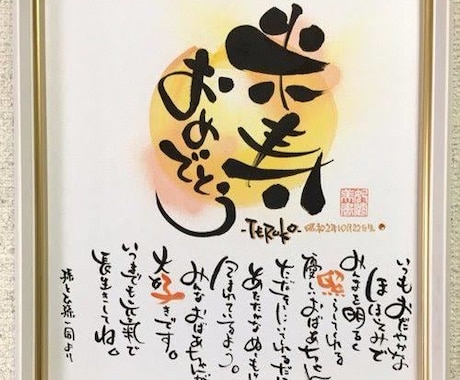 米寿
おめでとう
-TERUKO- 昭和2年10月22日生。
いつもおだやかな
ほほえみで
みんなを明るく
照らしてくれる
優しいおばあちゃん
ただそこにいてくれるだ
あたたかなぬくもり
包まれているよう。
みんなおばあちゃんが
大好きです。
いつまでも元気で
長生きしてね。
孫ひ孫一同より